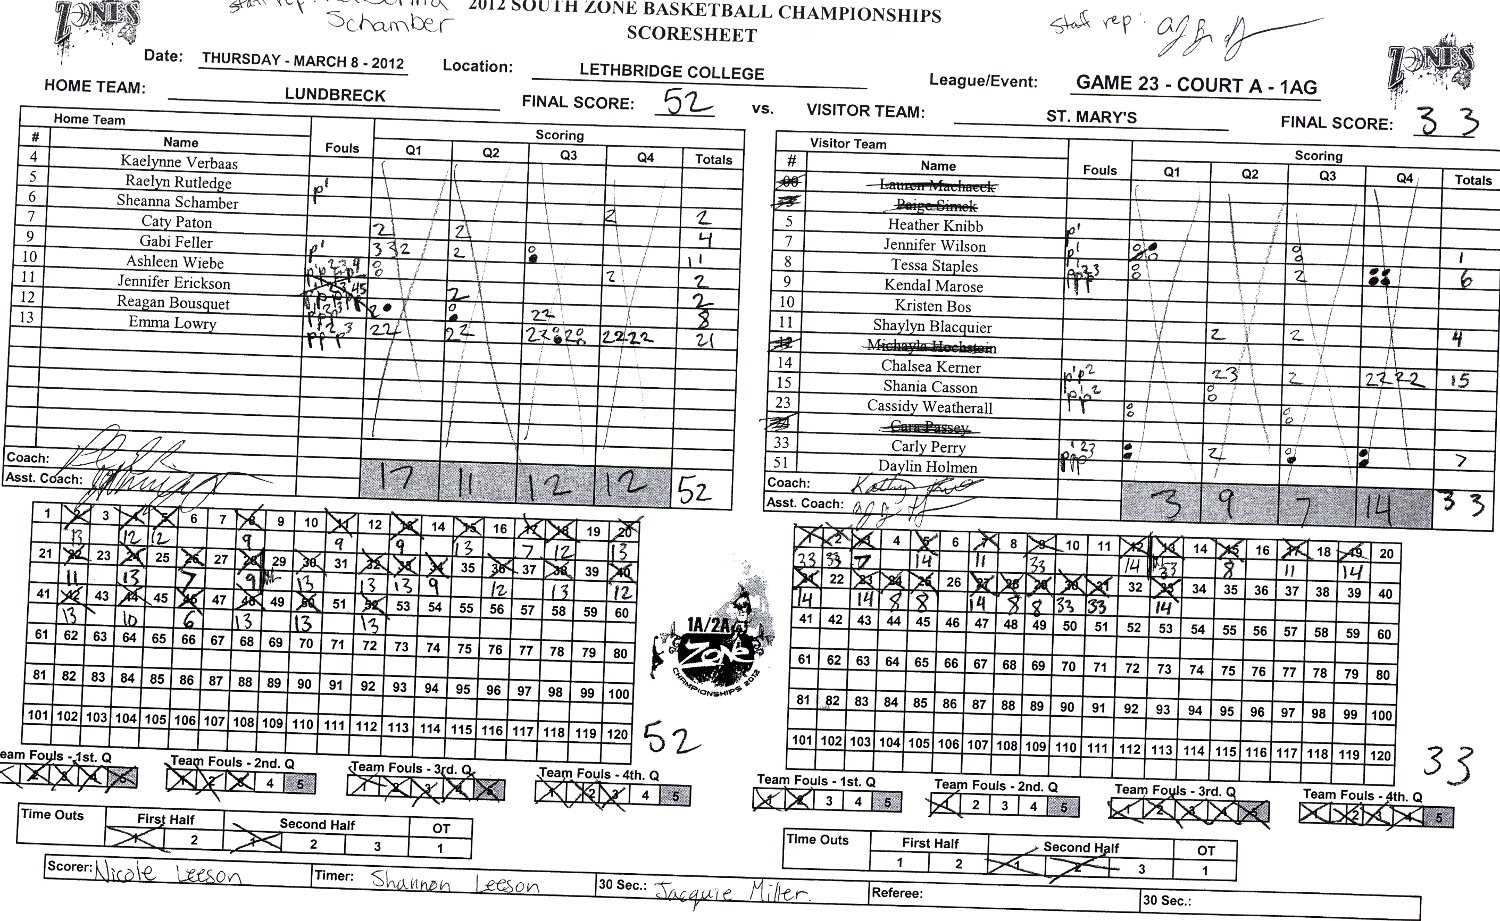 Staff rep:
Schamber
2012 SOUTH ZONE BASKETBALL CHAMPIONSHIPS
SCORESHEET
Staff rep:
ZONES
ZONES
Date: THURSDAY - MARCH 8 - 2012 Location: LETHBRIDGE COLLEGE League/Event: GAME 23 - COURT A - 1AG
HOME TEAM: LUNDBRECK FINAL SCORE: 52 vs. VISITOR TEAM: ST. MARY'S FINAL SCORE: 33
Home Team
# Name Fouls Scoring
Q1 Q2 Q3 Q4 Totals
4 Kaelynne Verbaas
5 Raelyn Rutledge
6 Sheanna Schamber 2 2
7 Caty Paton 2 2 4
9 Gabi Feller 332 2 11
10 Ashleen Wiebe 2 2
11 Jennifer Erickson 2 2
12 Reagan Bousquet 2 22 8
13 Emma Lowry 22 22 2222 21
Coach:
Asst. Coach:
17 11 12 12 52
Visitor Team
# Name Fouls Scoring
Q1 Q2 Q3 Q4 Totals
00 Lauren Machacek
Paige Simek
5 Heather Knibb
7 Jennifer Wilson 1
8 Tessa Staples 2 6
9 Kendal Marose
10 Kristen Bos
11 Shaylyn Blacquier 2 2 4
12 Michayla Hochstein
14 Chalsea Kerner 23 2 2222 15
15 Shania Casson
23 Cassidy Weatherall
24 Cara Passey
33 Carly Perry 2 7
51 Daylin Holmen
Coach:
Asst. Coach:
3 9 7 14 33
1 2 3 4 5 6 7 8 9 10 11 12 13 14 15 16 17 18 19 20
13 12 12 9 9 9 13 7 12 13
21 22 23 24 25 26 27 28 29 30 31 32 33 34 35 36 37 38 39 40
11 13 7 9 13 13 13 9 12 13 12
41 42 43 44 45 46 47 48 49 50 51 52 53 54 55 56 57 58 59 60
13 10 6 13 13 13
61 62 63 64 65 66 67 68 69 70 71 72 73 74 75 76 77 78 79 80
81 82 83 84 85 86 87 88 89 90 91 92 93 94 95 96 97 98 99 100
101 102 103 104 105 106 107 108 109 110 111 112 113 114 115 116 117 118 119 120
52
1A/2A/
Zone
CHAMPIONSHIPS 2012
1 2 3 4 5 6 7 8 9 10 11 12 13 14 15 16 17 18 19 20
33 33 7 14 11 33 14 33 8 11 14
21 22 23 24 25 26 27 28 29 30 31 32 33 34 35 36 37 38 39 40
14 14 8 8 14 8 8 33 33 14
41 42 43 44 45 46 47 48 49 50 51 52 53 54 55 56 57 58 59 60
61 62 63 64 65 66 67 68 69 70 71 72 73 74 75 76 77 78 79 80
81 82 83 84 85 86 87 88 89 90 91 92 93 94 95 96 97 98 99 100
101 102 103 104 105 106 107 108 109 110 111 112 113 114 115 116 117 118 119 120
33
Team Fouls - 1st. Q Team Fouls - 2nd. Q Team Fouls - 3rd. Q Team Fouls - 4th. Q
1 2 3 4 5 1 2 3 4 5 1 2 3 4 5 1 2 3 4 5
Team Fouls - 1st. Q Team Fouls - 2nd. Q Team Fouls - 3rd. Q Team Fouls - 4th. Q
1 2 3 4 5 1 2 3 4 5 1 2 3 4 5 1 2 3 4 5
Time Outs First Half Second Half OT
1 2 1 2 3 1
Time Outs First Half Second Half OT
1 2 1 2 3 1
Scorer: Nicole Leeson Timer: Shannon Leeson 30 Sec.: Jacquie Miller. Referee: 30 Sec.: